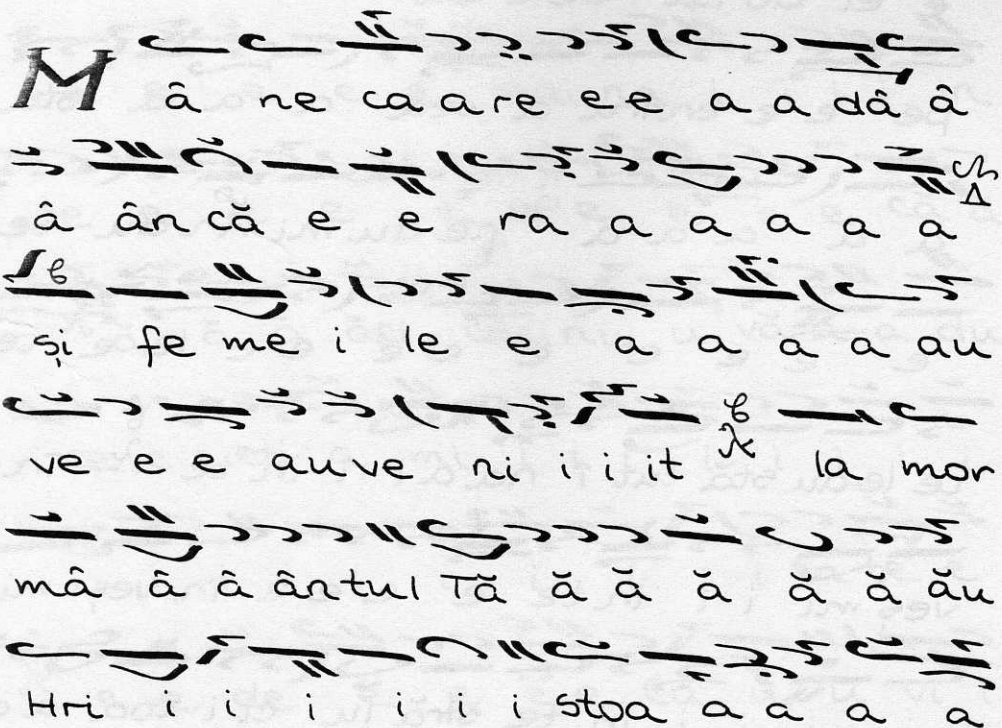 Mâ ne ca a re e e a a dâ â
â ân că e e ra a a a a a
și fe me i le e a a a a au
ve e e au ve ni i i it la mor
mâ â â ântul Tă ă ă ă ă ă ău
Hri i i i i i i stoa a a a a